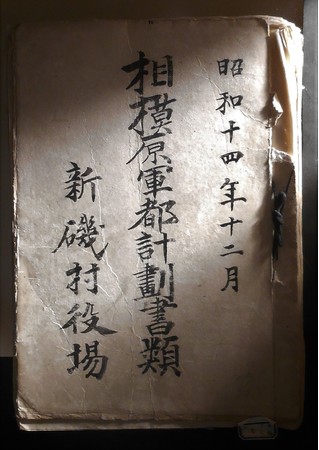 昭和十四年十二月
相模原軍都計劃書類
新磯村役場